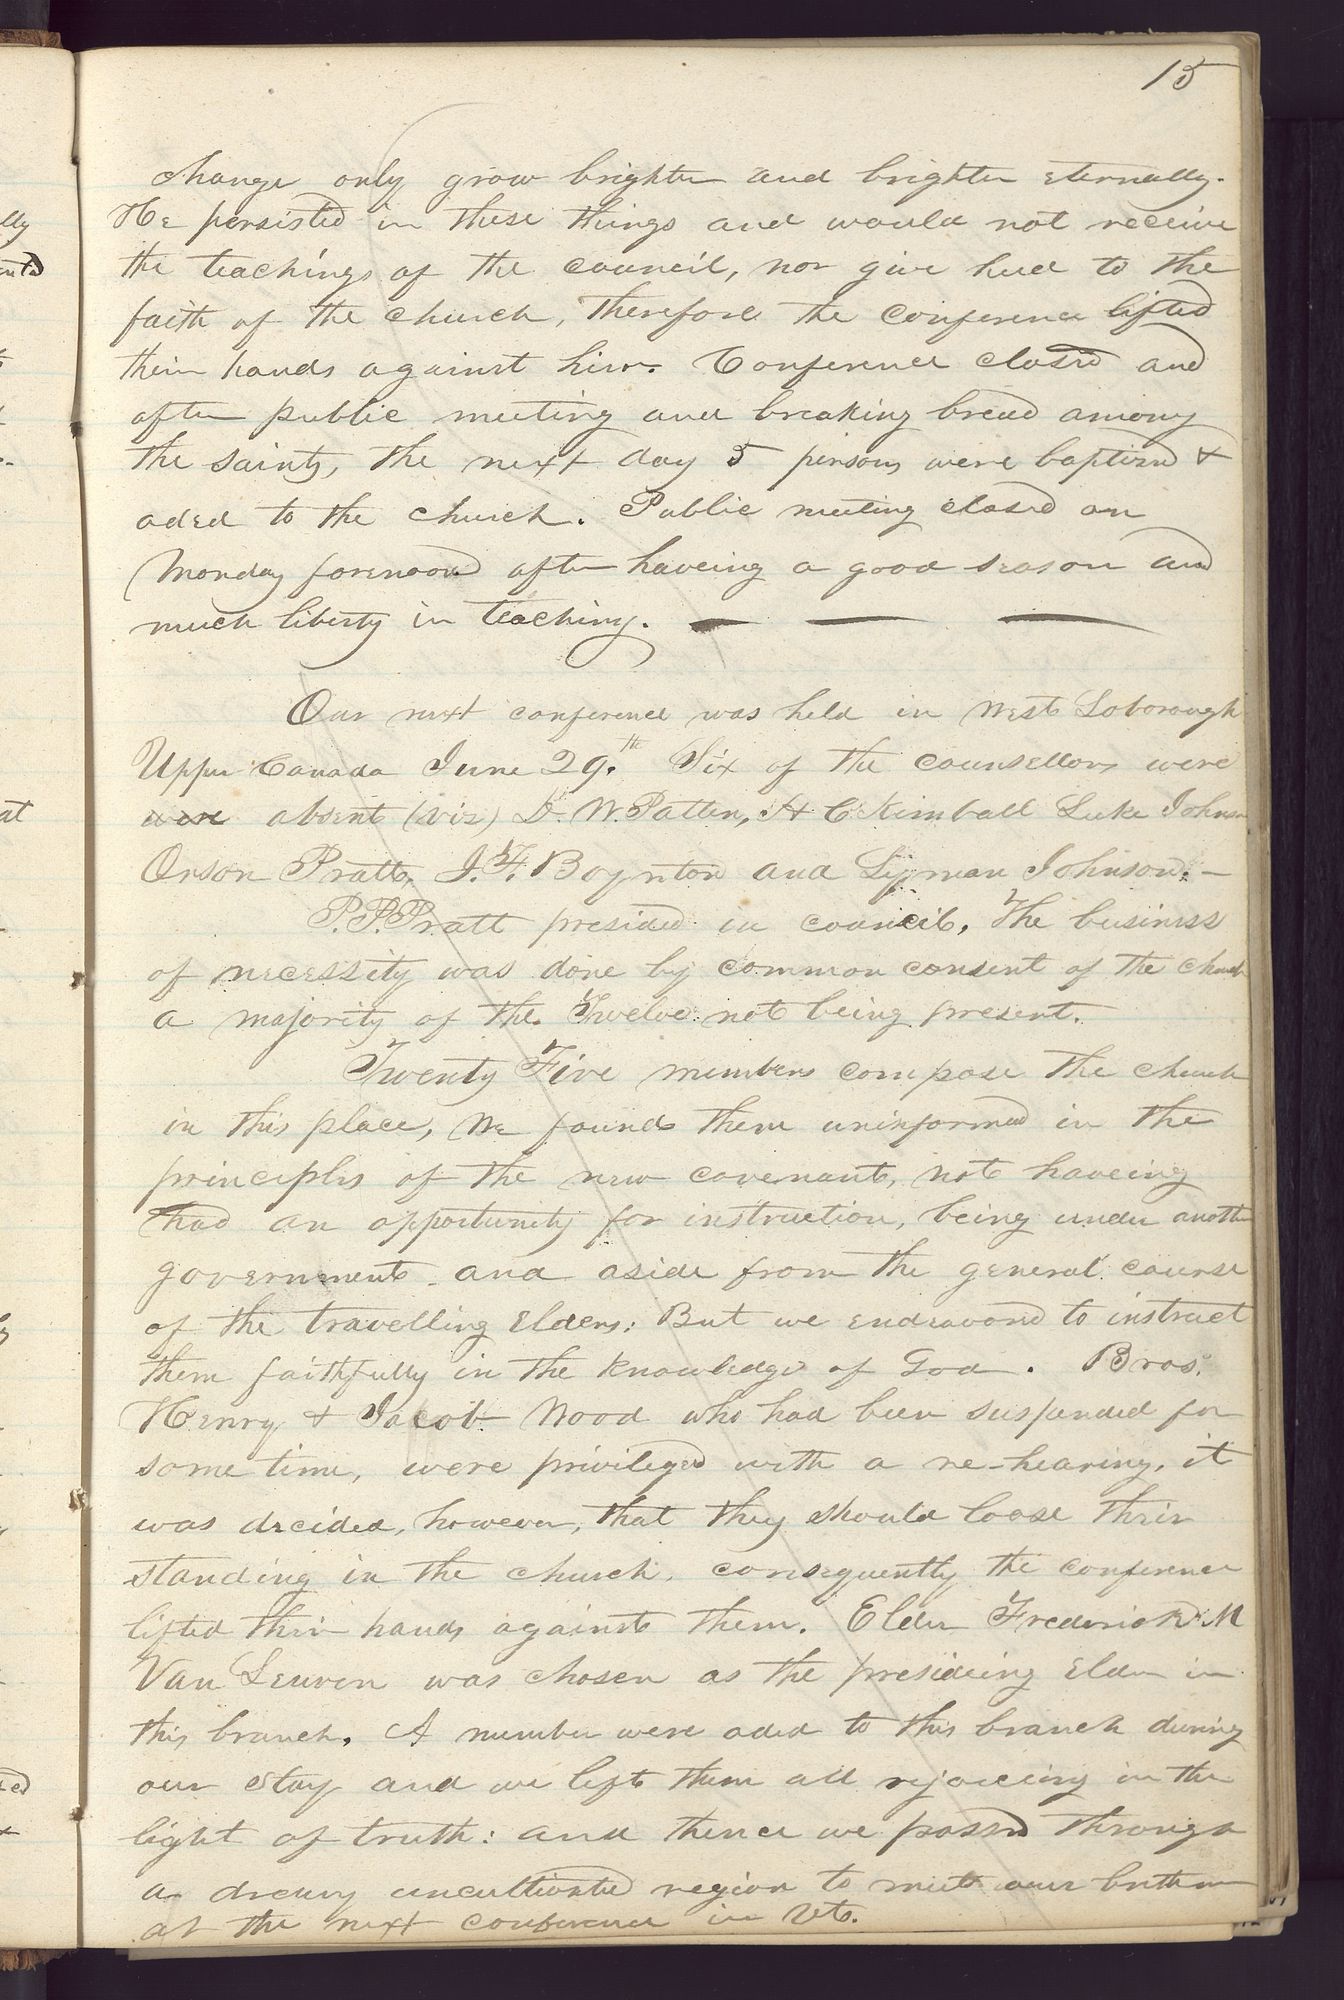 15
change only grow brighter and brighter eternally.
He persisted in these things and would not receive
the teachings of the council, nor give heed to the
faith of the church, therefore the conference lifted
their hands against him. Conference closed and
after public meeting and breaking bread among
the saints, the next day 5 persons were baptized &
aded to the church. Public meeting closed on
Monday forenoon after haveing a good season and
much liberty in teaching. — — —
Our next conference was held in West Loborough
Upper Canada June 29.th Six of the counsellors were
were absent (viz) D. W. Patten, H C Kimball Luke Johnson
Orson Pratt, J. F. Boynton and Lyman Johnson. —
P. P. Pratt presided in council, The business
of necessity was done by common consent of the church
a majority of the Twelve not being present.
Twenty Five members compose the church
in this place, We found them uninformed in the
principles of the new covenant, not haveing
had an opportunity for instruction, being under another
government and aside from the general course
of the travelling Elders; But we endeavored to instruct
them faithfully in the knowledge of God. Bros.
Henry & Jacob Wood who had been suspended for
some time, were privileged with a re-hearing, it
was decided, however, that they should loose their
standing in the church, consequently the conference
lifted their hands against them. Elder Frederick M
Van Leuven was chosen as the presideing Elder in
this branch. A number were aded to this branch during
our stay and we left them all rejoiceing in the
light of truth: and thence we passed through
a dreary uncultivated region to meet our brethren
at the next conference in Vt.